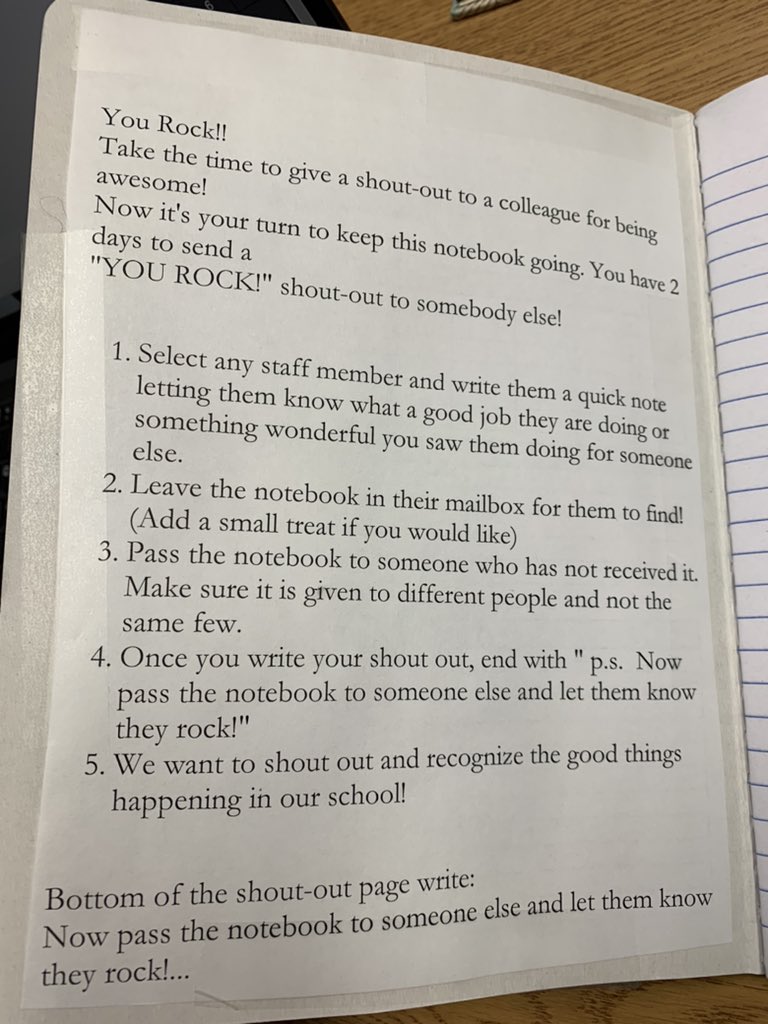 You Rock!!
Take the time to give a shout-out to a colleague for being
awesome!
Now it's your turn to keep this notebook going. You have 2
days to send a
"YOU ROCK!" shout-out to somebody else!
1. Select any staff member and write them a quick note
letting them know what a good job they are doing or
something wonderful you saw them doing for someone
else.
2. Leave the notebook in their mailbox for them to find!
(Add a small treat if you would like)
3. Pass the notebook to someone who has not received it.
Make sure it is given to different people and not the
same few.
4. Once you write your shout out, end with " p.s. Now
pass the notebook to someone else and let them know
they rock!"
5. We want to shout out and recognize the good things
happening in our school!
Bottom of the shout-out page write:
Now pass the notebook to someone else and let them know
they rock!...